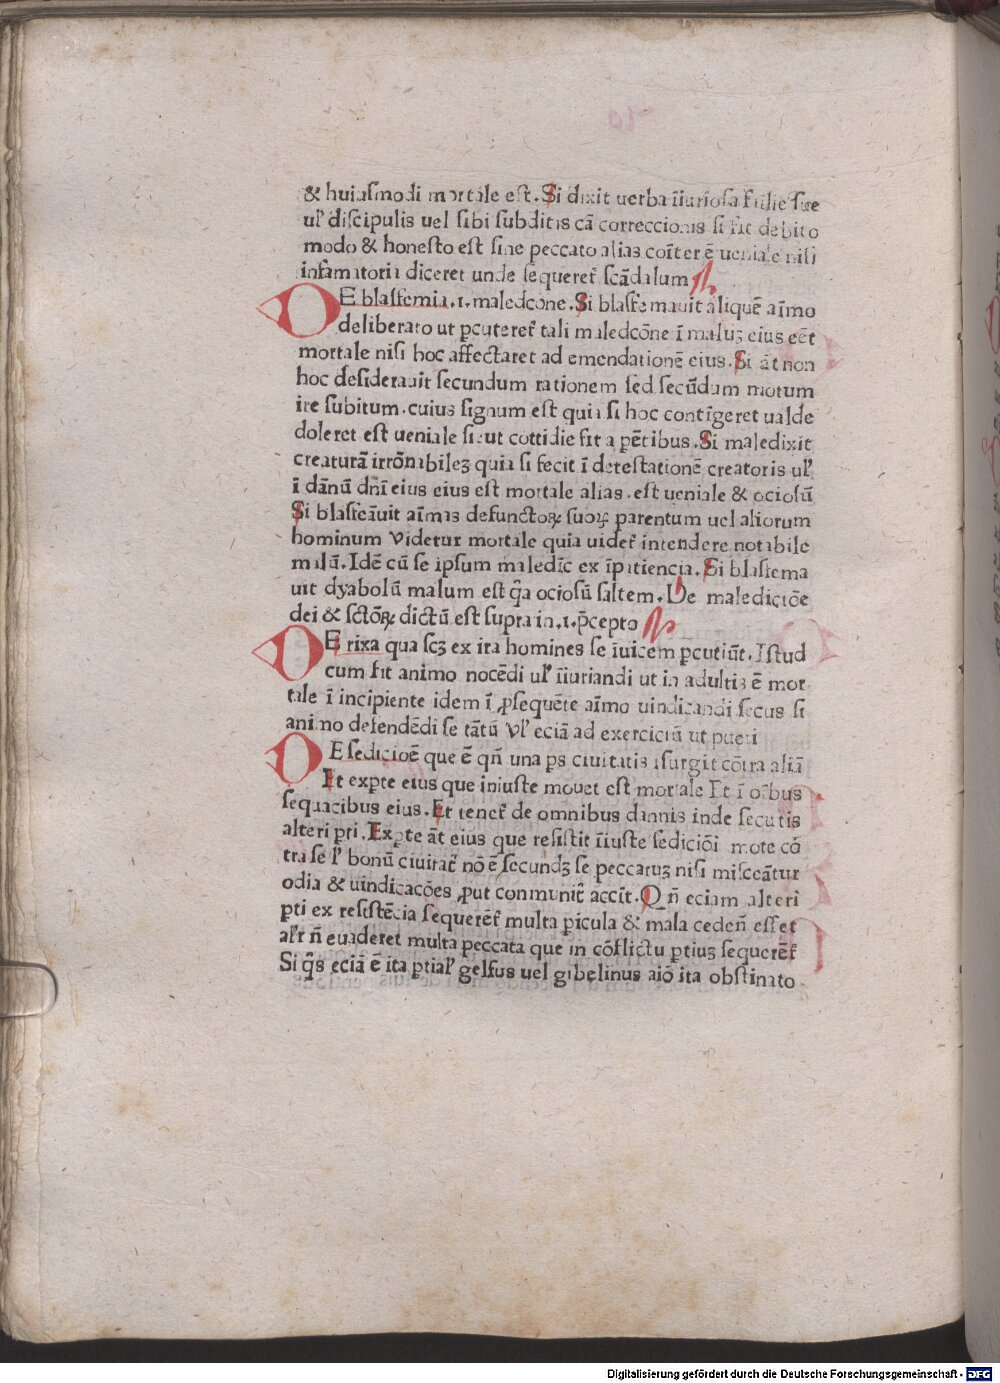 & huiusmodi mortale est. Si dixit uerba īiuriosa filie sue
ul’ discipulis uel sibi subditis cā correccionis si fit debito
modo & honesto est sine peccato alias coīter ē ueniale nisi
infamatoria diceret unde sequeret᷑ scādalum
DE blasfemia .ı. maledcōne. Si blasfemauit aliquē aīmo
deliberato ut ꝑcuteret᷑ tali maledcōne ī maluꝫ eius eēt
mortale nisi hoc affectaret ad emendationē eius. Si āt non
hoc desiderauit secundum rationem sed secūdum motum
ire subitum. cuius signum est quia si hoc contīgeret ualde
doleret est ueniale sicut cottidie fit a pētibus. Si maledixit
creaturā irrōnabileꝫ quia si fecit ī detestationē creatoris ul’
ī dānū dnī eius eius est mortale alias. est ueniale & ociosū
Si blasfēauit aīmas defunctoꝝ suoꝝ parentum uel aliorum
hominum videtur mortale quia uidet᷑ intendere notabile
malū. Idē cū se ipsum maledic̄ ex īpatiencia. Si blasfema
uit dyabolū malum est q̄a ociosū saltem. De maledictōe
dei & sctōꝝ dictū est supra in .ı. p̄cepto
DE rixa qua scꝫ ex ira homines se īuicem ꝑcutiūt. Istud
cum fit animo nocēdi ul’ īiuriandi ut in adultis ē mor
tale ī incipiente idem ī ꝓsequēte aīmo uindicandi secus si
animo defendēdi se tātū vl’ eciā ad exerciciū ut pueri
DE sedicioē que ē qn̄ una ps ciuitatis īsurgit cōtra aliā
Et expte eius que iniuste mouet est mortale Et ī oībus
sequacibus eius. Et tenet᷑ de omnibus dannis inde secutis
alteri ꝑti. Expte āt eius que resistit īiuste sediciōi mote cō
tra se l’ bonū ciuitat᷑ nō ē secundꝫ se peccatuꝫ nisi misceātur
odia & uindicacōes ꝓut communit᷑ accit̄. Qn̄ eciam alteri
ꝑti ex resistēcia sequerēt᷑ multa ꝑicula & mala ceden̄ esset
al’r n̄ euaderet multa peccata que in cōflictu ꝑtiuꝫ sequerēt᷑
Si q̄s eciā ē ita ꝑtial’ gelfus uel gibelinus aīo ita obstinato
Digitalisierung gefördert durch die Deutsche Forschungsgemeinschaft - DFG